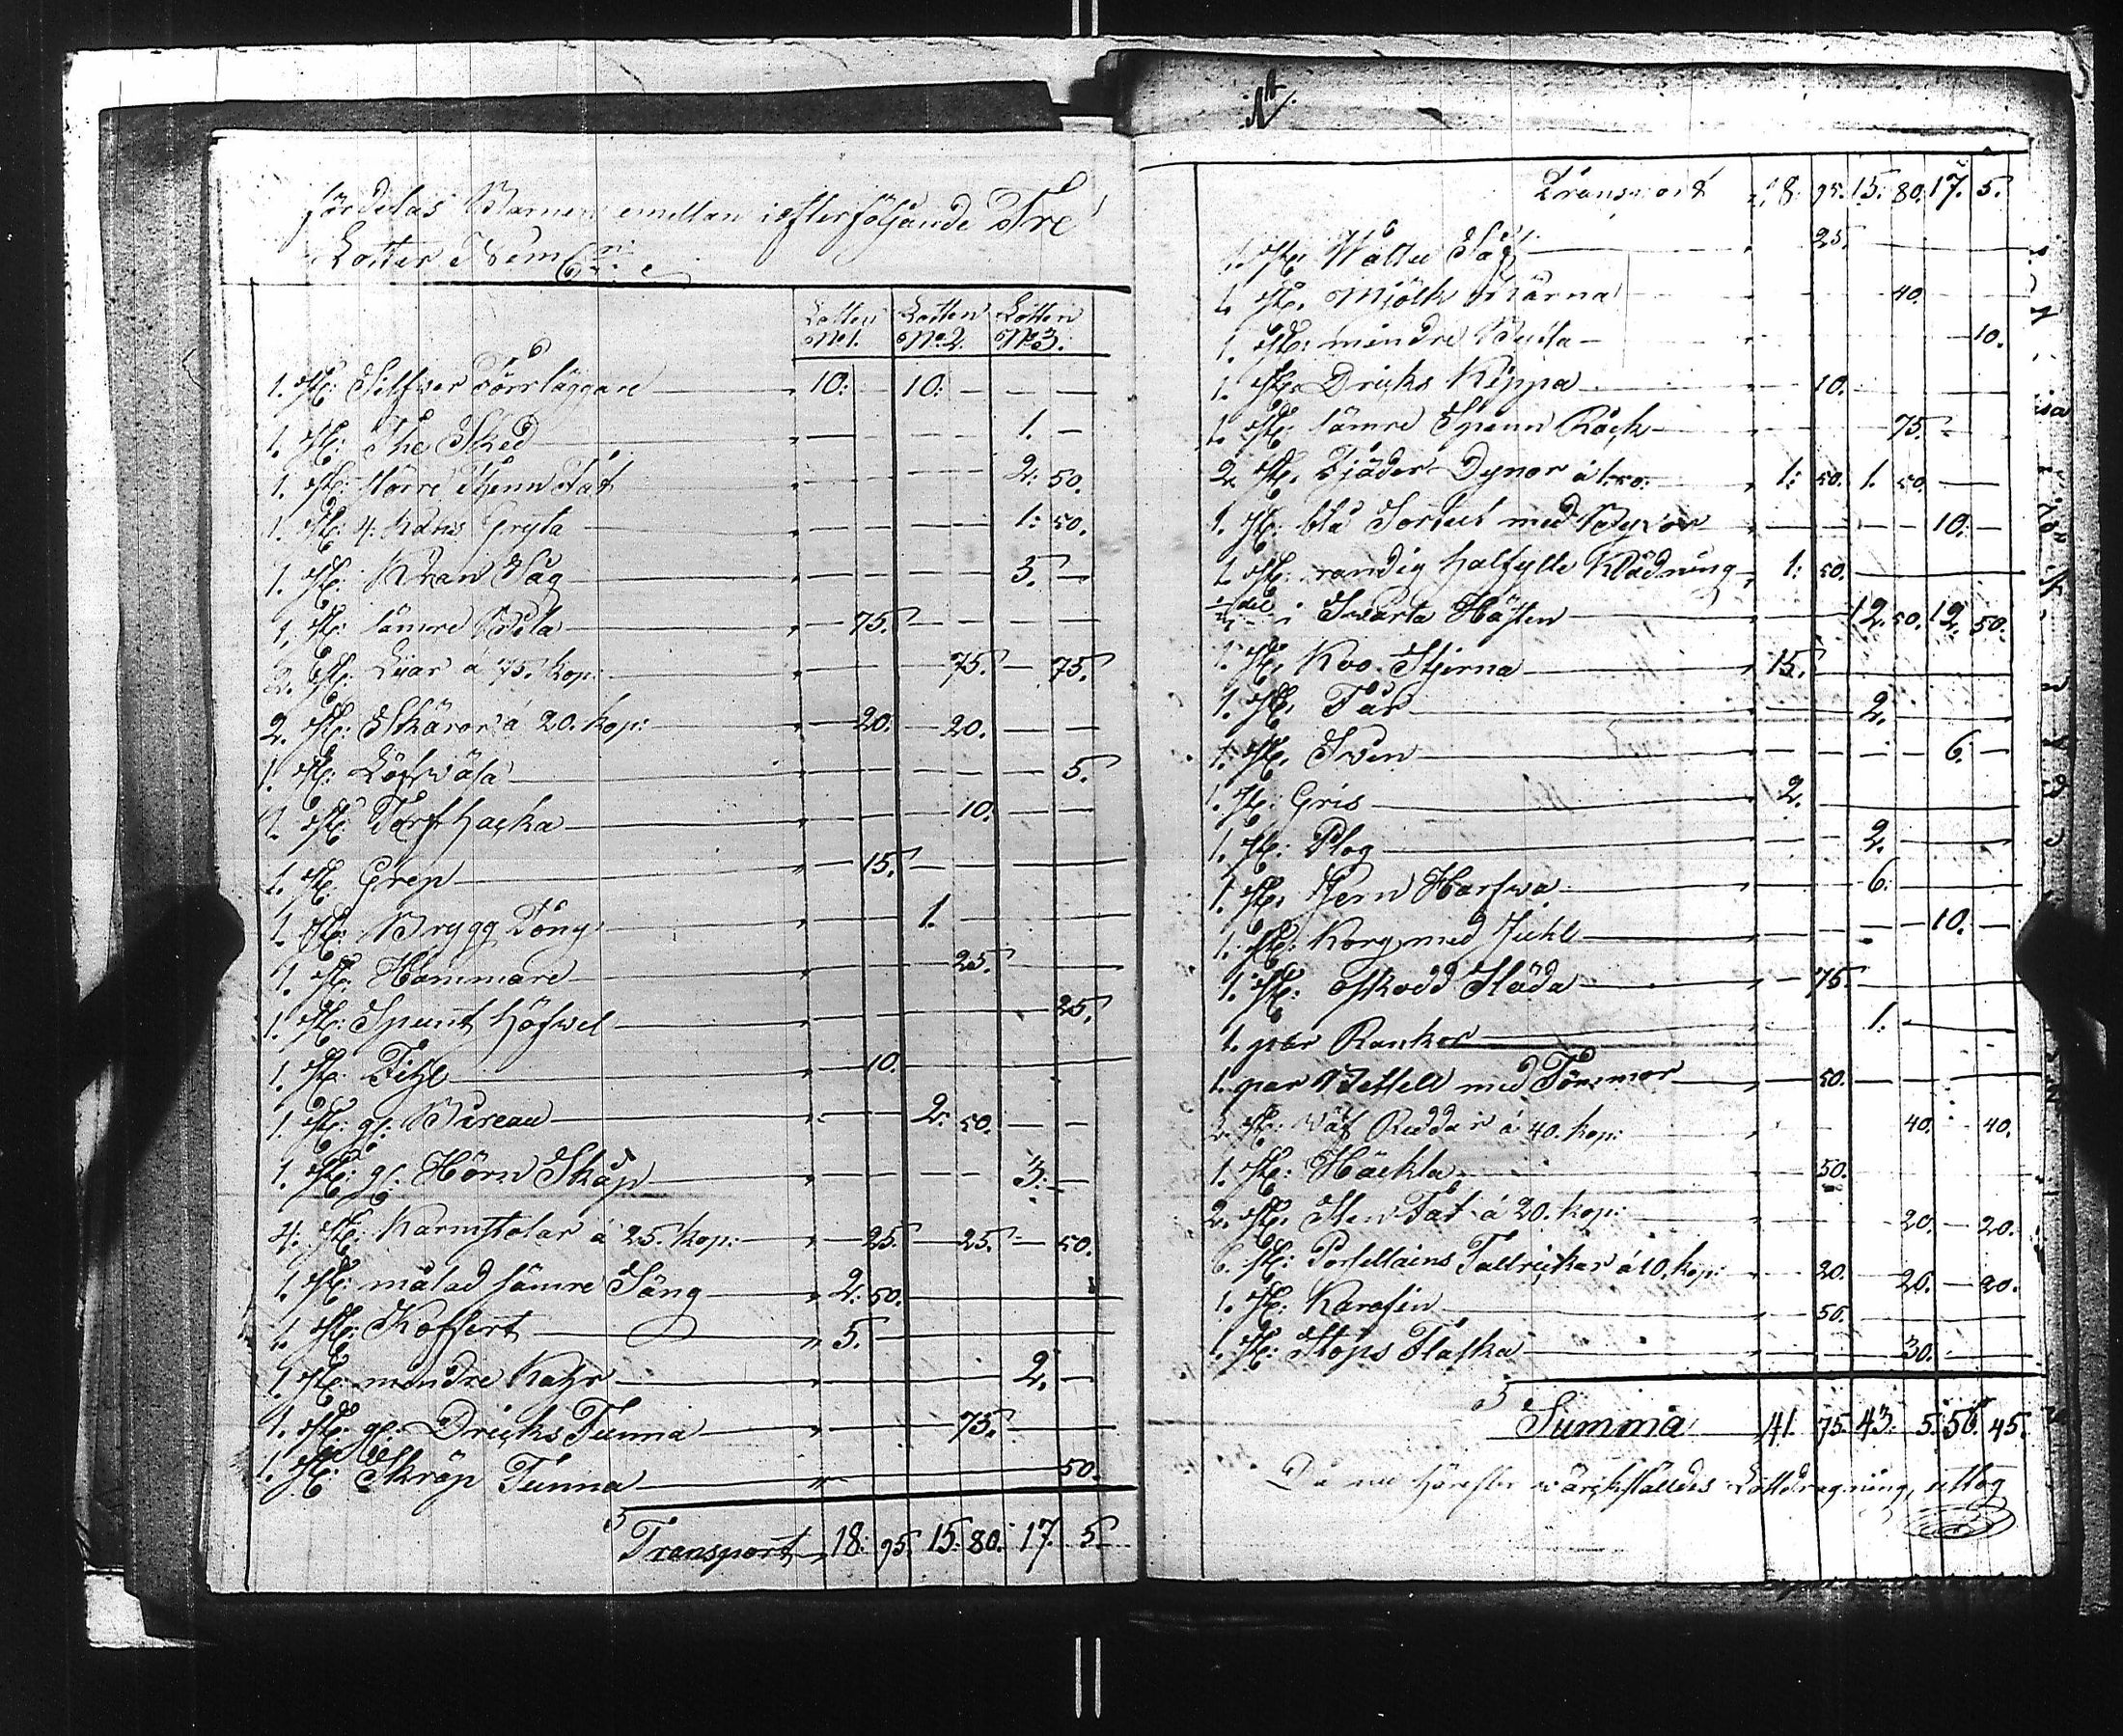 fördelas Barnen emellan i efterföljande Tre
Lotter Nem
Lotten Lotten Lotten
No1. No2. No3.
1. St: Silfver Förrläggare 10: 10:
1. St: The Sked 1.
1. St: större Thenn Fat 2: 50.
1. St: 4. Kans Gryta 1: 50.
1. St: Kran Såg 5.
1. St: sämre Bila 75.
2. St: Lijar á 75. kop: 75. 75.
2. St: Skäror á 20. kop: 20. 20.
1. St: Löfväsa 5.
1. St: Torfhacka 10.
1. St: Grep 15.
1. St: Brygg Töng 1.
1. St: Hammare 25.
1. St: Spunt Höfvel 25.
1. St: Fihl 10.
1. St: gl: Bureau 2: 50.
1. St: gl: Hörn Skåp 3:
4. St: Karmstolar á 25. kop: 25. 25. 50.
1. St: målad sämre Säng 2: 50.
1. St: Koffert 5.
1. St: mindre Kahr 2.
1. St: gl: Dricks Tunna 75.
1. St: Skräp Tunna 50.
Transport 18: 95. 15: 80. 17. 5.
Transport 18. 95. 15. 80. 17. 5.
1. St: Såg 25.
1. St: Mjölk Kärna 40.
1. St: mindre Butta 10.
1. St: Dricks Kippa 10.
1. St: sämre Spann Råck 75.
2. St: Fjäder Dynor á 1:50: 1: 50. 1. 50.
1. St: blå Sortut med Byxor 10.
1. St: randig halfylle Klädning 1: 50.
del i Svarta Hästen 12. 50. 12. 50.
1. St: Koo Stjerna 15.
1. St: Får 2.
1. St: Svin 6.
1. St: Gris 2.
1. St: Plog 2.
1. St: Jern Harfwa 6.
1. St: Korg med Juhl 10.
1. St: oskodd Släda 75.
1. par Ranker 1.
1. par Bettell med Tömmar 50.
2. St: Wäf Reddar á 40. kop: 40. 40.
1. St: Häckla 50.
2. St: Sten Fat á 20. kop: 20. 20.
6. St: Porsellains Tallrickar á 10. kop: 20. 20. 20.
1. St: Karafin 50.
1. St: Stops Flaska 30.
Summa 41. 75. 43. 5. 56. 45.
Då nu härefter värckställdes Lottdragning, uttog